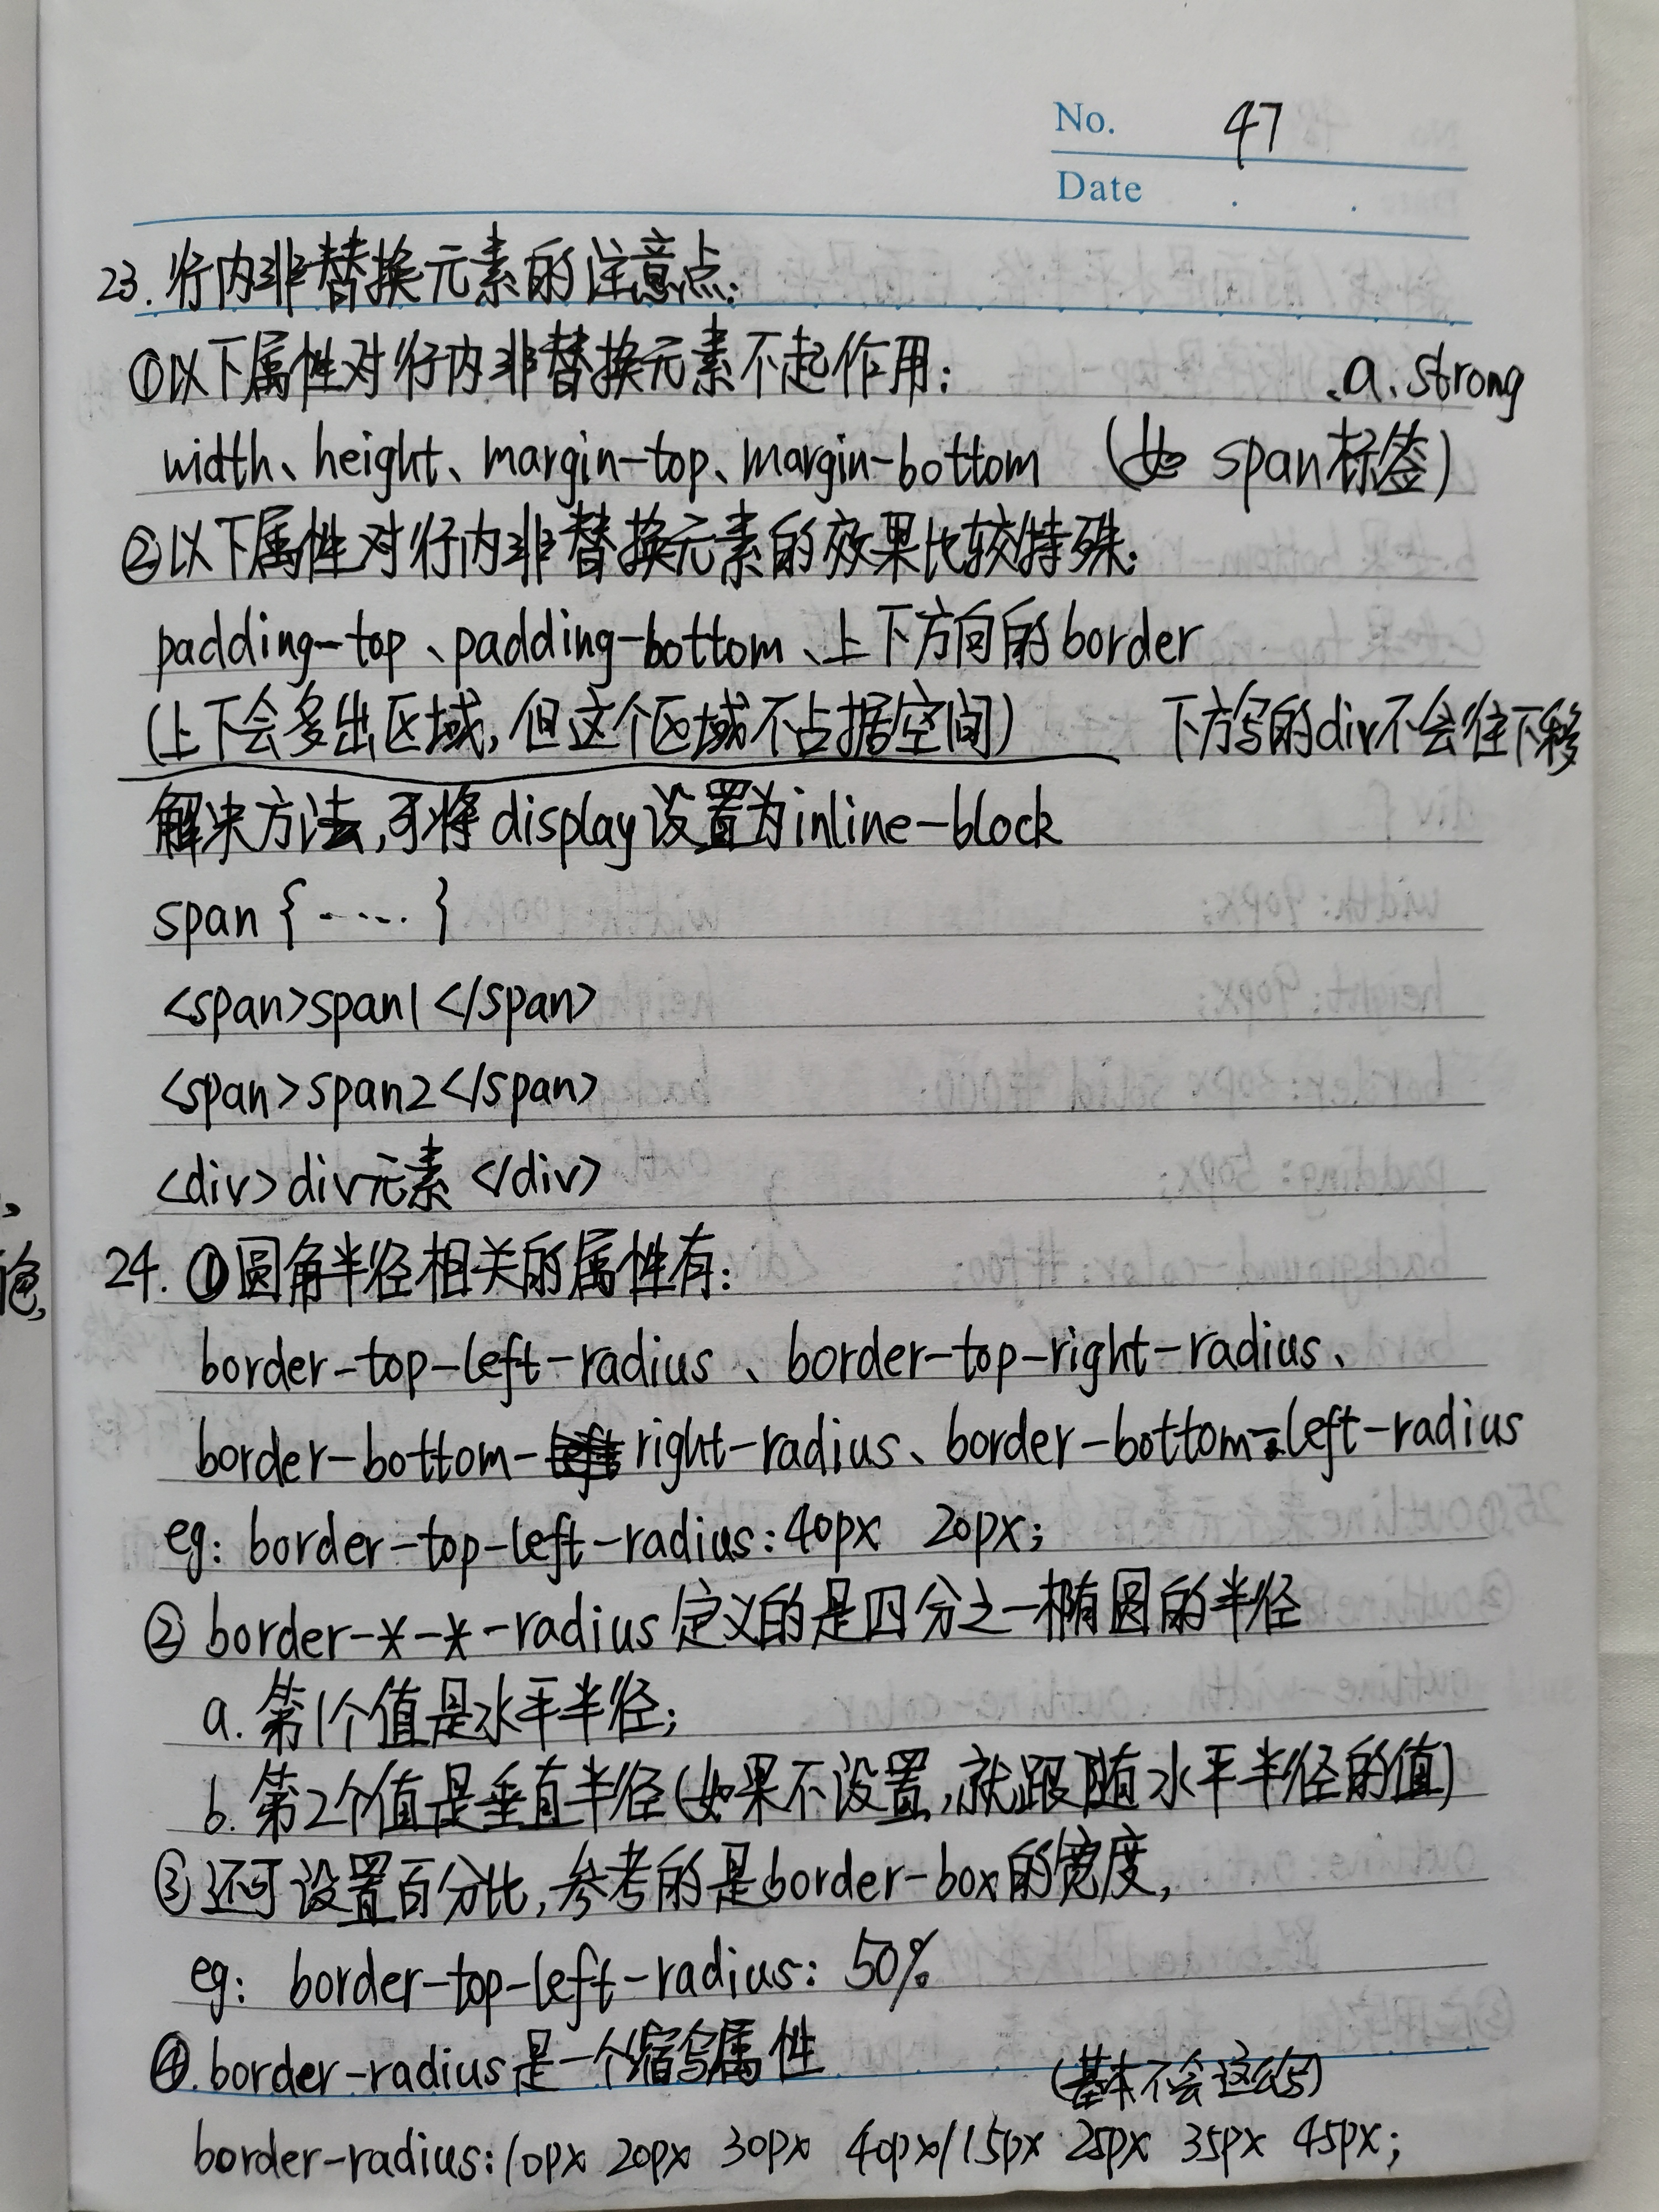 No. 47
Date . .
23. 行内非替换元素的注意点:
①以下属性对行内非替换元素不起作用: 、a、strong
width、height、margin-top、margin-bottom (如 span标签)
②以下属性对行内非替换元素的效果比较特殊:
padding-top、padding-bottom、上下方向的border
(上下会多出区域,但这个区域不占据空间) 下方写的div不会往下移
解决方法,可将display设置为inline-block
span { ...... }
<span>span1</span>
<span>span2</span>
<div>div元素</div>
24. ①圆角半径相关的属性有:
border-top-left-radius、border-top-right-radius、
border-bottom-right-radius、border-bottom-left-radius
eg: border-top-left-radius:40px 20px;
② border-*-*-radius定义的是四分之一椭圆的半径
a. 第1个值是水平半径;
b. 第2个值是垂直半径(如果不设置,就跟随水平半径的值)
③还可设置百分比,参考的是border-box的宽度,
eg: border-top-left-radius: 50%
④.border-radius是一个缩写属性 (基本不会这么写)
border-radius:10px 20px 30px 40px/15px 25px 35px 45px;